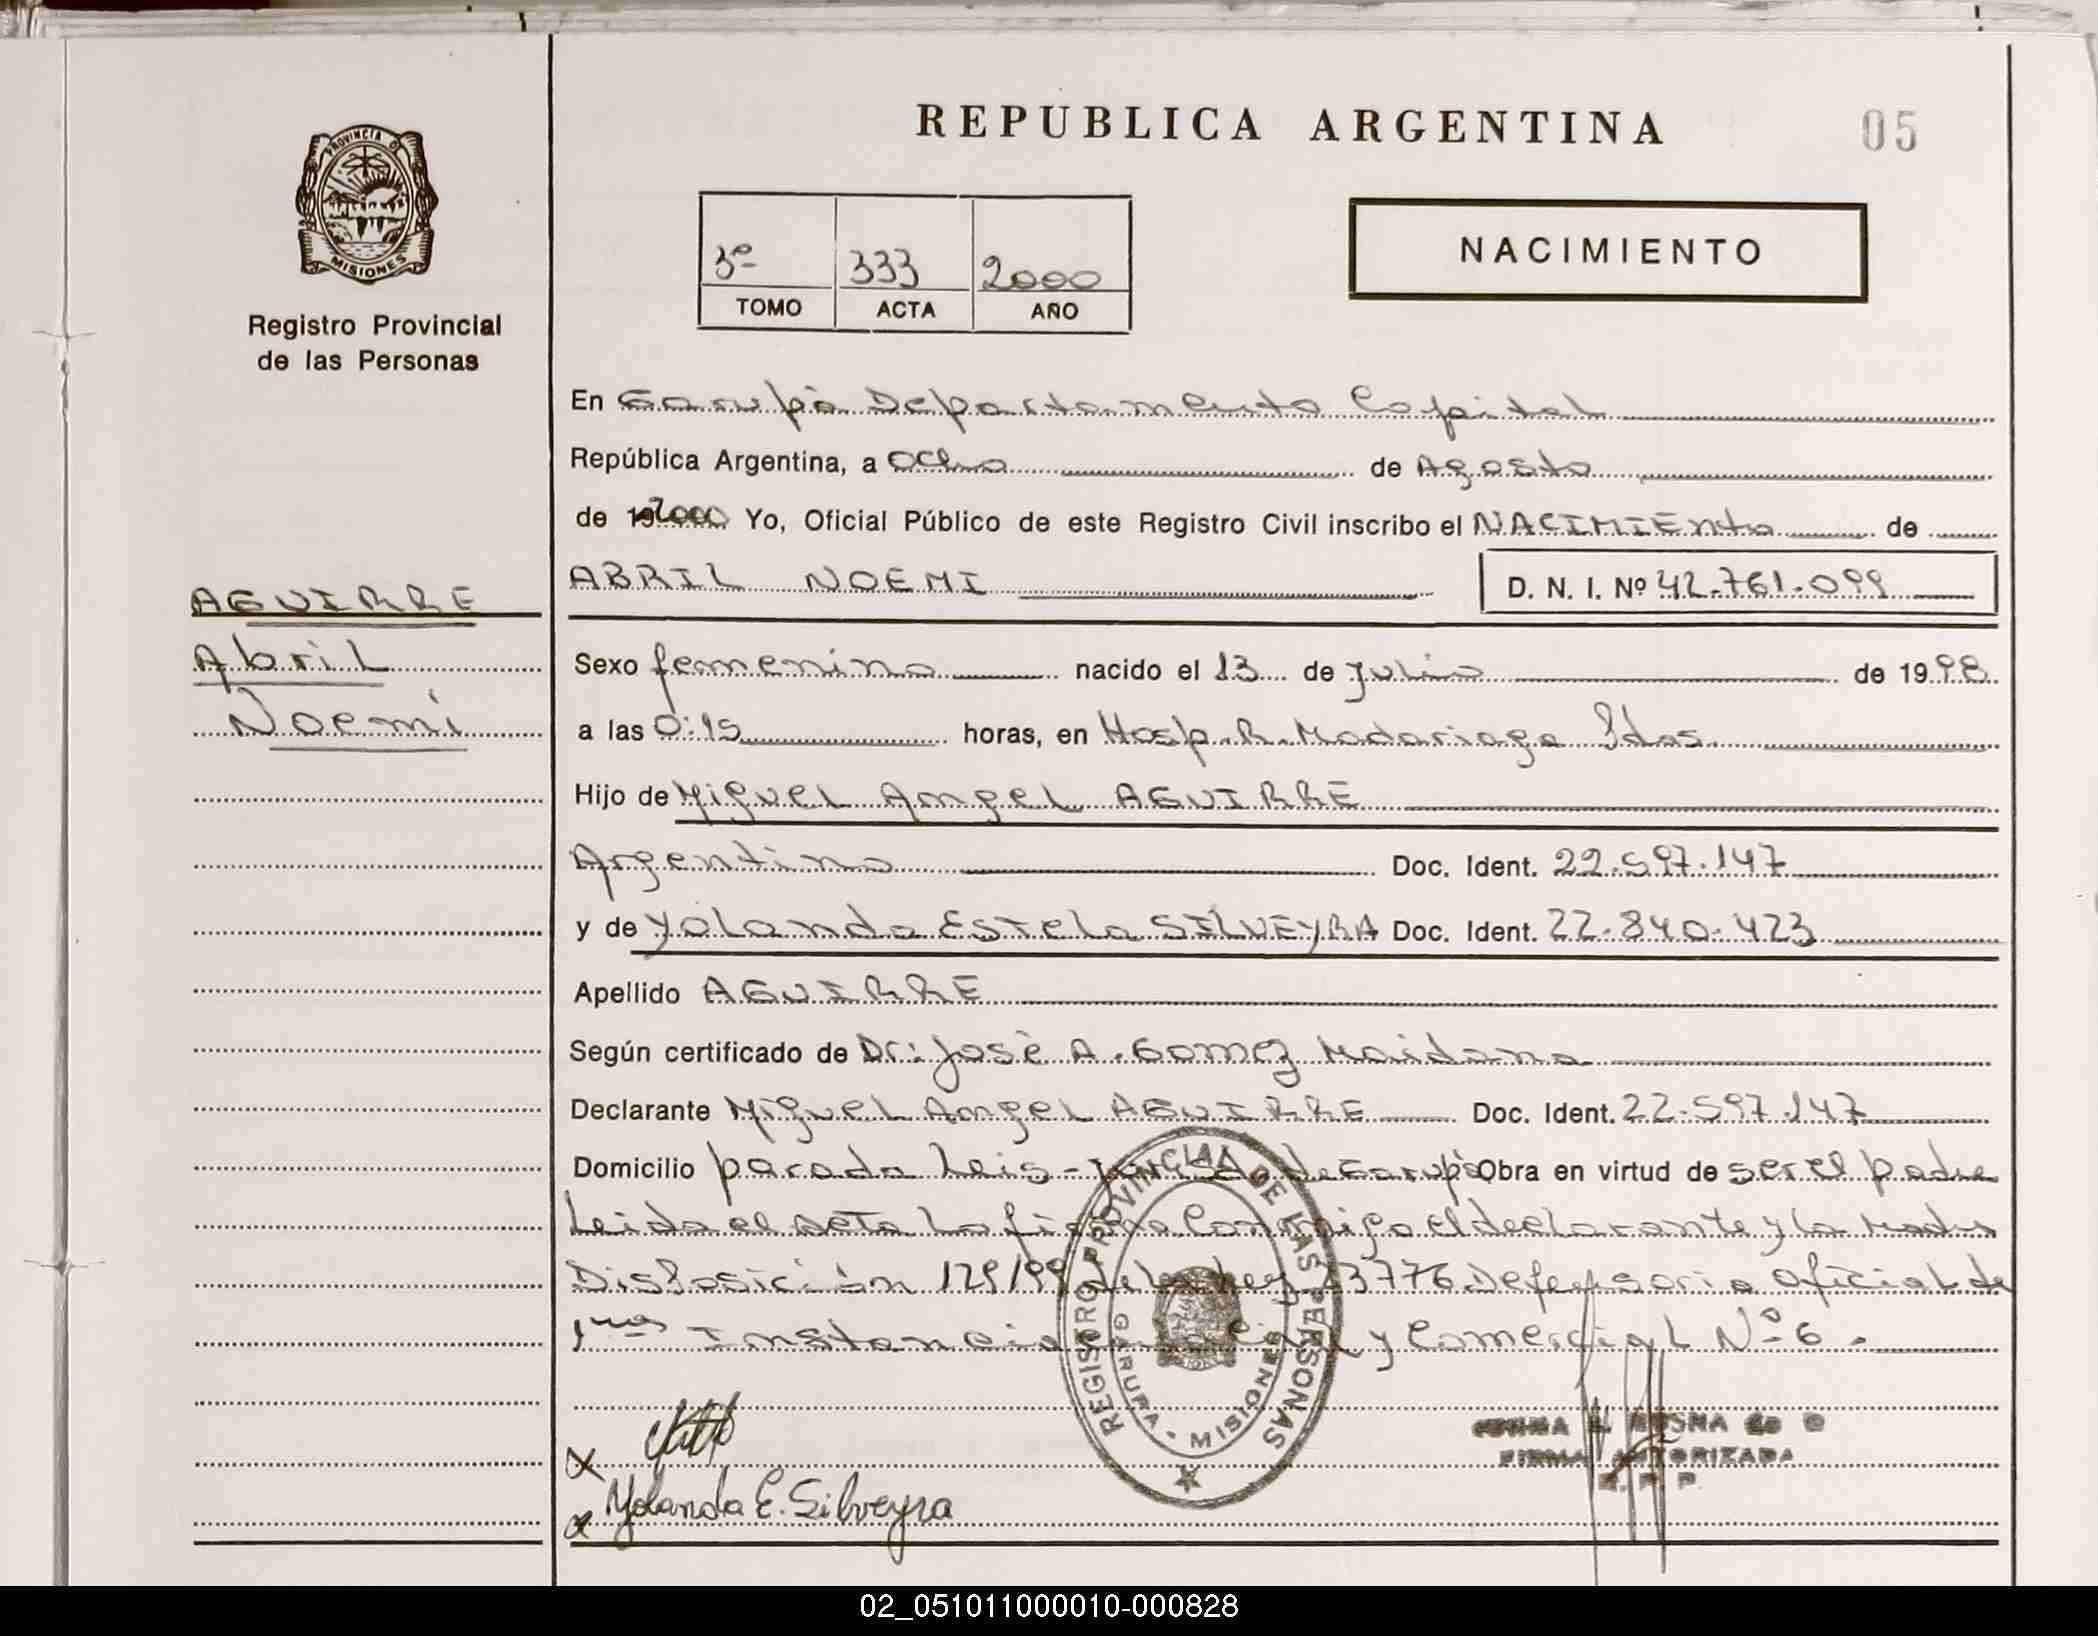 REPUBLICA ARGENTINA
05
PROVINCIA DE
MISIONES
Registro Provincial
de las Personas
3º 333 2000
TOMO ACTA AÑO
NACIMIENTO
En Garupá Departamento Capital
República Argentina, a ocho de Agosto
de 2000 Yo, Oficial Público de este Registro Civil inscribo el NACIMIENto de
ABRIL NOEMI D. N. I. Nº 42.761.099
AGUIRRE
Abril
Noemi
Sexo femenino nacido el 13 de Julio de 1998
a las 0:15 horas, en Hosp. R. Madariaga Pdas.
Hijo de Miguel Angel AGUIRRE
Argentino Doc. Ident. 22.597.147
y de Yolanda Estela SILVEYRA Doc. Ident. 22.840.423
Apellido AGUIRRE
Según certificado de Dr: José A. Gomez Maidana
Declarante Miguel Angel AGUIRRE Doc. Ident. 22.597.147
Domicilio parada Leis - de Garupá Obra en virtud de ser el padre
Leida el acta La firma Conmigo el declarante y la Madre
Disposición 129/99 de la Ley 23776 Defensoria Oficial de
1ra Instancia Civil y Comercial Nº 6.
REGISTRO PROVINCIAL DE LAS PERSONAS
GARRUPA - MISIONES
X
Yolanda E. Silveyra
FIRMA AUTORIZADA
R. P. P.
02_051011000010-000828